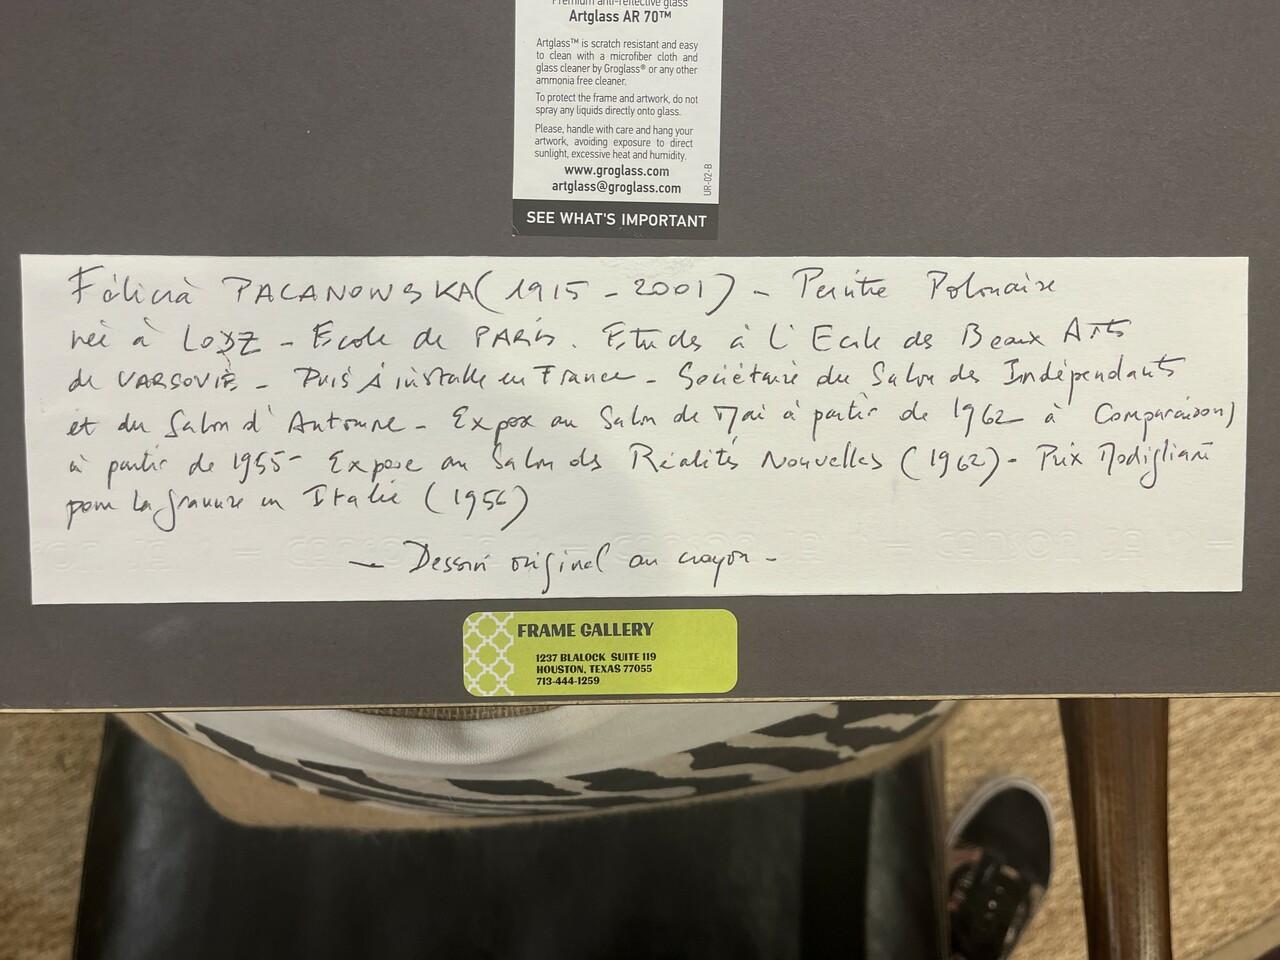 Premium anti-reflective glass
Artglass AR 70™
Artglass™ is scratch resistant and easy
to clean with a microfiber cloth and
glass cleaner by Groglass® or any other
ammonia free cleaner.
To protect the frame and artwork, do not
spray any liquids directly onto glass.
Please, handle with care and hang your
artwork, avoiding exposure to direct
sunlight, excessive heat and humidity.
www.groglass.com
artglass@groglass.com
UR-02-B
SEE WHAT'S IMPORTANT
Félicia PACANOWSKA (1915 - 2001) - Peintre Polonaise
née à LODZ - Ecole de PARIS. Etudes à l'Ecole des Beaux Arts
de VARSOVIE - Puis s'installe en France - Sociétaire du Salon des Indépendants
et du Salon d'Automne - Expose au Salon de Mai à partir de 1962 à Comparaisons
à partir de 1955 - Expose au Salon des Réalités Nouvelles (1962) - Prix Modigliani
pour la gravure en Italie (1956)
- Dessin original au crayon -
FRAME GALLERY
1237 BLALOCK SUITE 119
HOUSTON, TEXAS 77055
713-444-1259